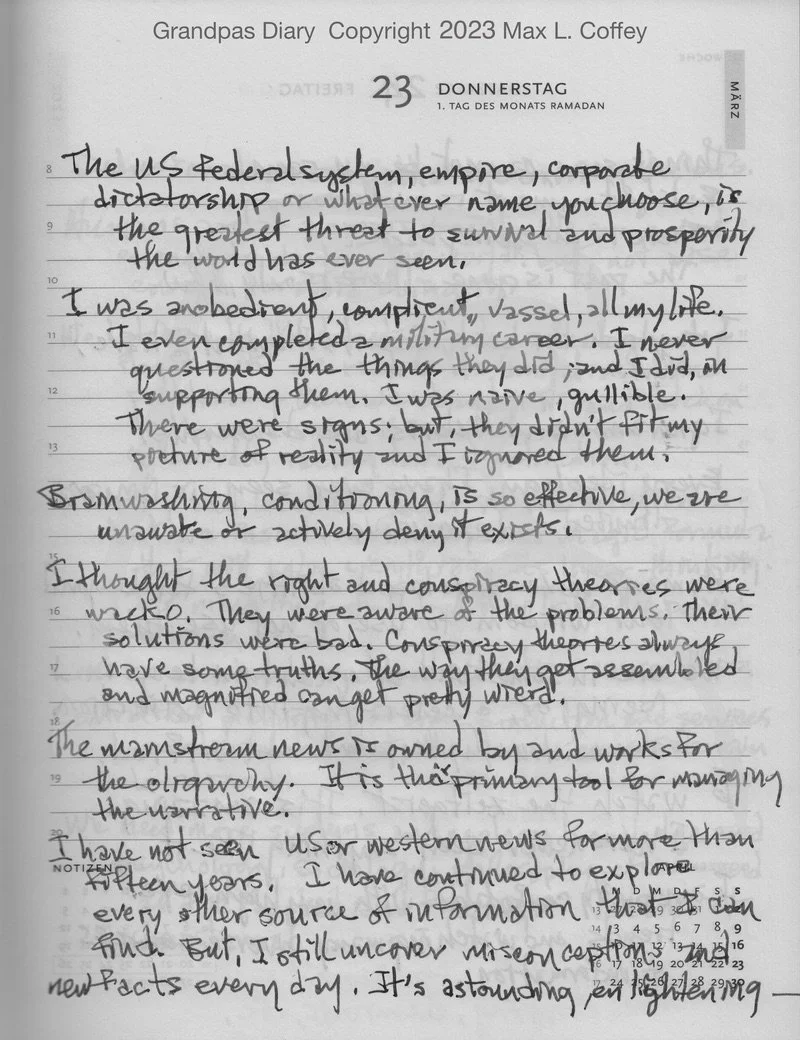 Grandpas Diary Copyright 2023 Max L. Coffey
23 DONNERSTAG
1. TAG DES MONATS RAMADAN
MÄRZ
8 The US Federal system, empire, corporate
dictatorship or what ever name you choose, is
9 the greatest threat to survival and prosperity
the world has ever seen.
10
I was an obedient, complicent, vassel, all my life.
11 I even completed a military career. I never
questioned the things they did, and I did, in
12 supporting them. I was naive, gullible.
There were signs; but, they didn't fit my
13 picture of reality and I ignored them.
Brainwashing, conditioning, is so effective, we are
unaware or actively deny it exists.
15
I thought the right and conspiracy theories were
16 wacko. They were aware of the problems. Their
solutions were bad. Conspiracy theories always
17 have some truths. The way they get assembled
and magnified can get pretty wierd.
18
The mainstream news is owned by and works for
19 the oligarchy. It is the primary tool for managing
the narrative.
20
I have not seen US or western news for more than
NOTIZEN
fifteen years. I have continued to explore
APRIL
every other source of information that I can
find. But, I still uncover misconceptions and
new facts every day. It's astounding, enlightening —
M D M D F S S
13 1 2
14 3 4 5 6 7 8 9
15 10 11 12 13 14 15 16
16 17 18 19 20 21 22 23
17 24 25 26 27 28 29 30